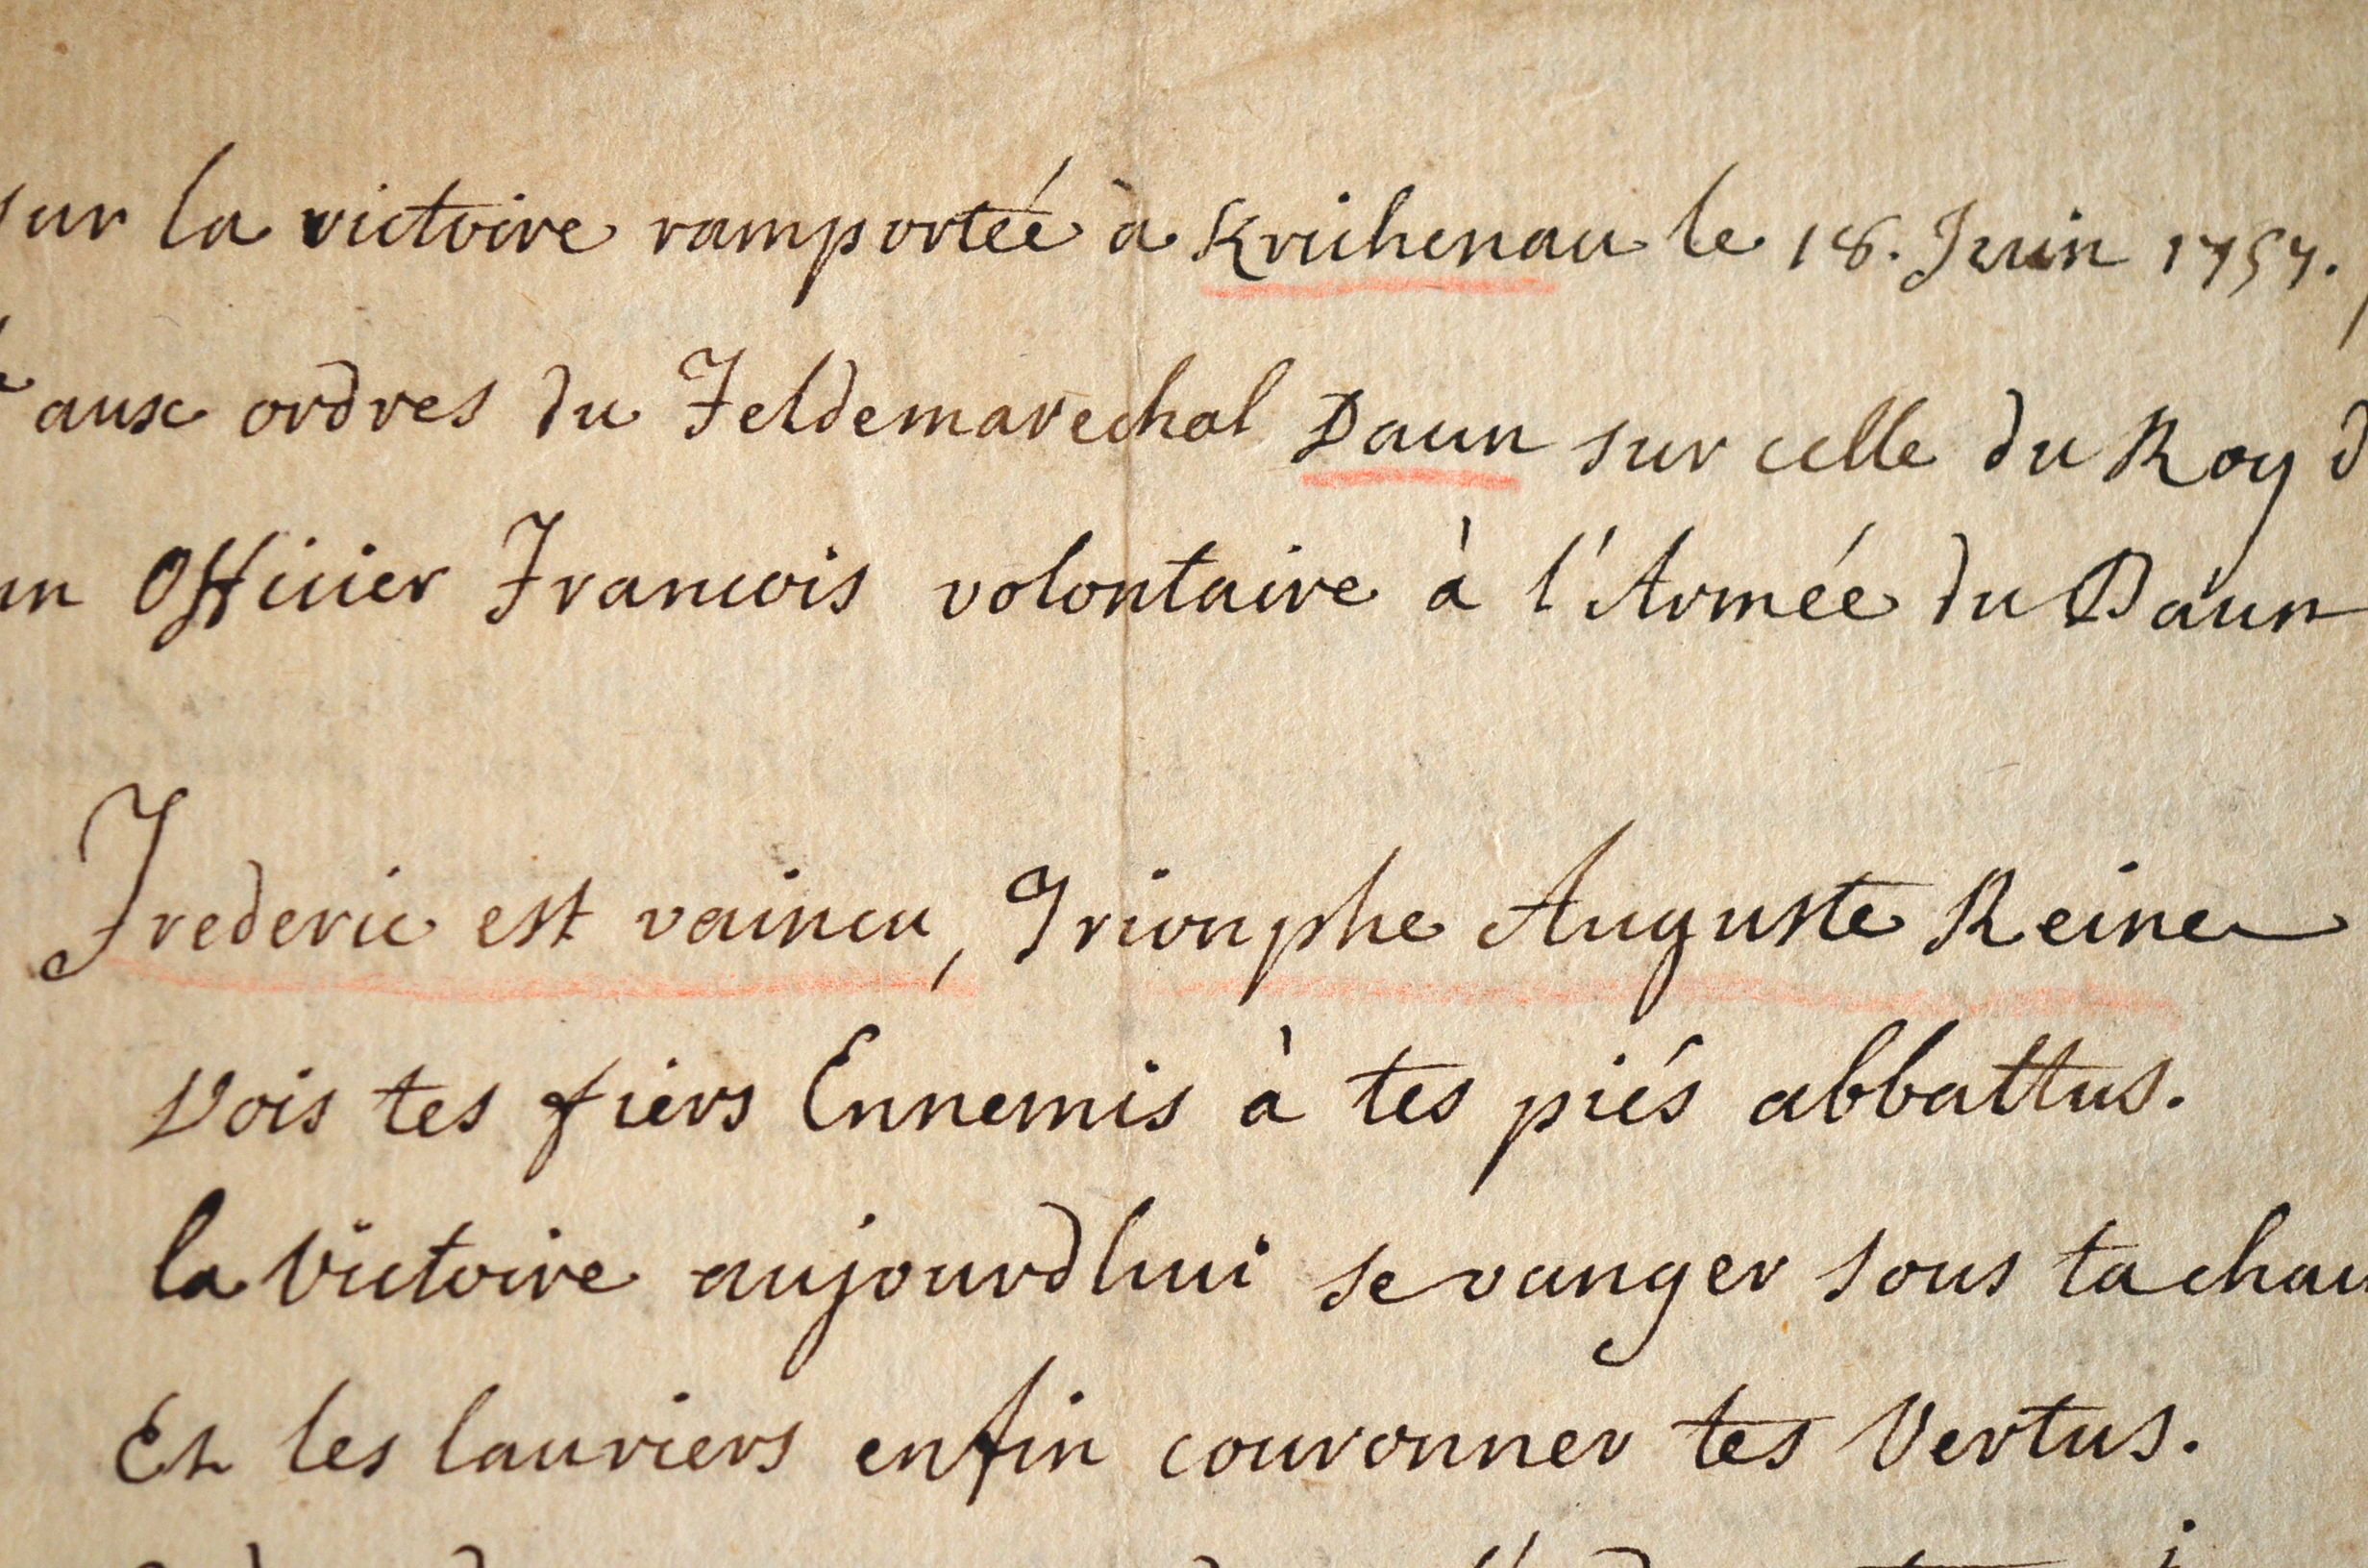 sur la victoire ramportée à Krichenau le 18. Juin 1757.
aux ordres du Feldemarechal Daun sur celle du Roy d
un Officier Francois volontaire à l'Armée du Daun
Frederic est vaincu, Trionphe Auguste Reine
Vois tes fiers Ennemis à tes piés abbattus.
la Victoire aujourdhui se vanger sous ta chai
Et les lauriers enfin couronner tes Vertus.